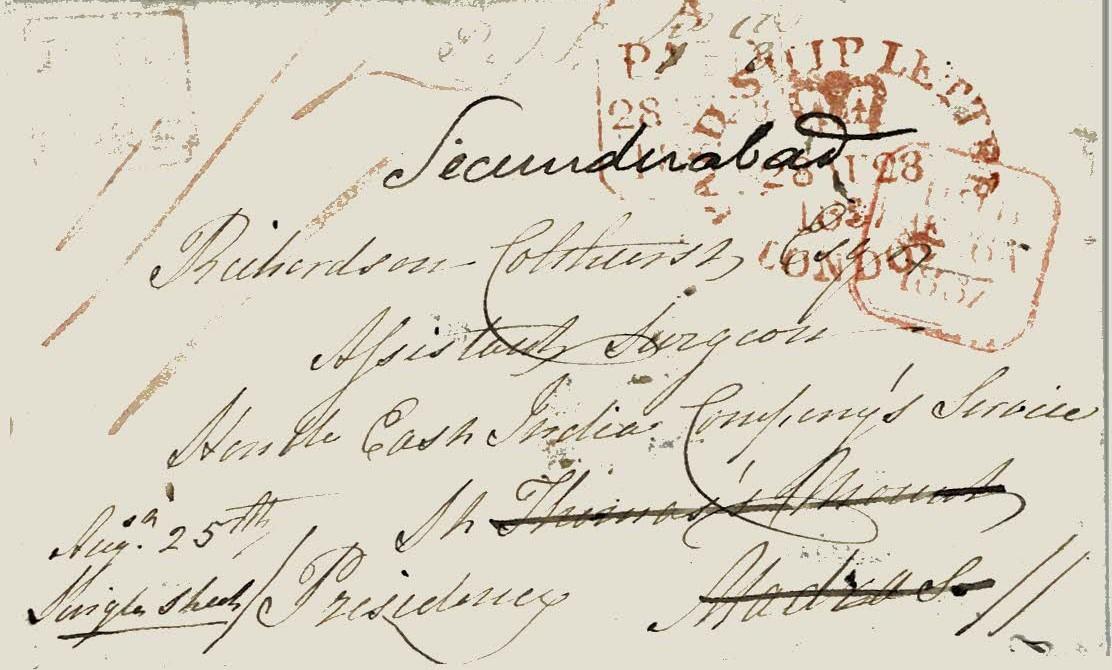 PAID SHIP LETTER
28 JU 28
1837
LONDON
1837
Secunderabad
Richardson Colthurst, Esqr
Assistant Surgeon
Honble East India Company's Service
St Thomas's Mount
Augsa 25th
Single Sheet/ Presidency Madras //